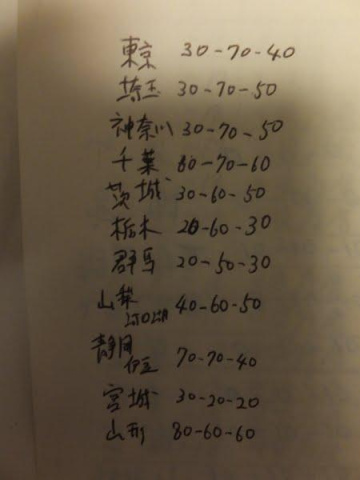 東京 30-70-40
埼玉 30-70-50
神奈川 30-70-50
千葉 80-70-60
茨城 30-60-50
栃木 20-60-30
群馬 20-50-30
山梨 40-60-50
河口湖
静岡 70-70-40
伊豆
宮城 30-20-20
山形 80-60-60